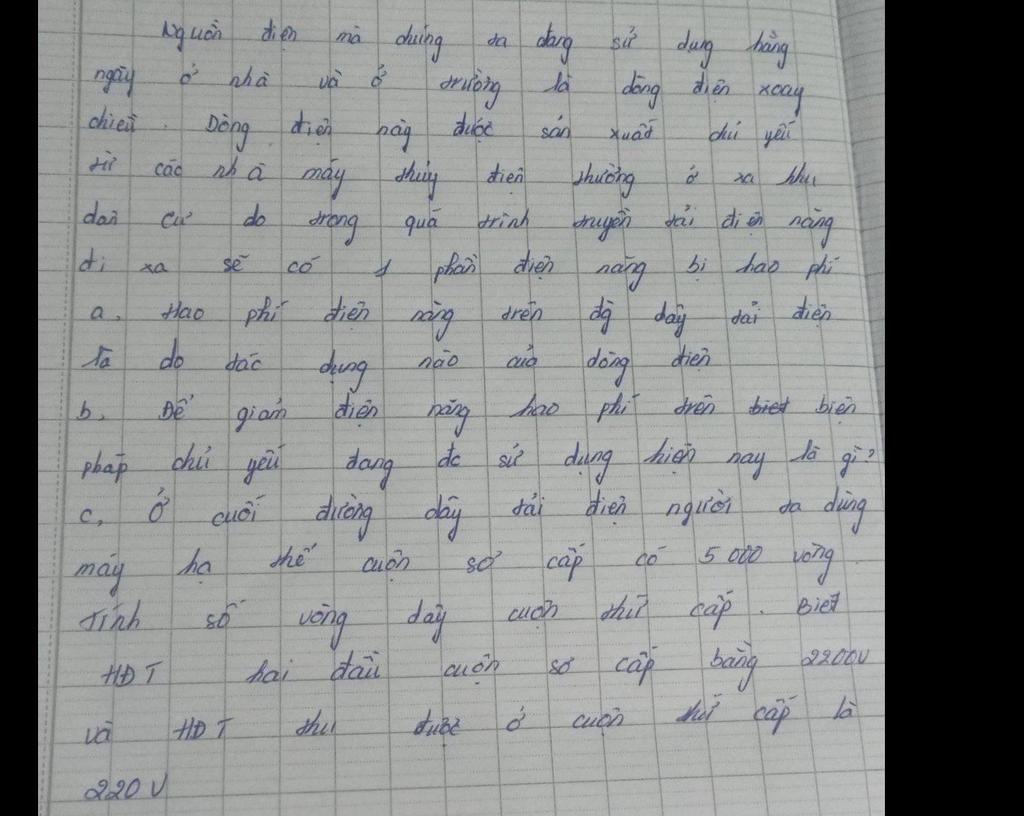 Nguồn điện mà chúng ta đang sử dụng hằng
ngày ở nhà và ở trường là dòng điện xoay
chiều. Dòng điện này được sản xuất chủ yếu
từ các nhà máy thủy điện thường ở xa khu
dân cư do trong quá trình truyền tải điện năng
đi xa sẽ có 1 phần điện năng bị hao phí
a, Hao phí điện năng trên đg dây tải điện
là do tác dụng nào của dòng điện
b, Để giảm điện năng hao phí trên biệt biện
pháp chủ yếu đang đc sử dụng hiện nay là gì?
c, Ở cuối đường dây tải điện người ta dùng
máy hạ thế cuộn sơ cấp có 5 000 vòng.
Tính số vòng dây cuộn thứ cấp. Biết
HĐT hai đầu cuộn sơ cấp bằng 2200V
và HĐT thu được ở cuộn thứ cấp là
220 V